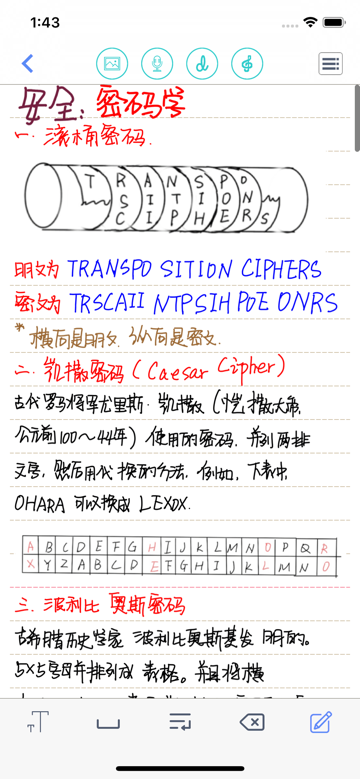 1:43
安全：密码学
一. 滚桶密码.
T R A N S P O
S I T I O N
C I P H E R S
明文为 TRANSPO SITION CIPHERS
密文为 TRSCAII NTPSIH POE ONRS
* 横向是明文. 纵向是密文.
二. 凯撒密码 (Caesar Cipher)
古代罗马将军尤里斯·凯撒 (恺撒大帝,
公元前100～44年) 使用的密码. 并列两排
文字, 然后用代换的方法, 例如, 下表中,
OHARA 可以换成 LEXOX.
A B C D E F G H I J K L M N O P Q R
X Y Z A B C D E F G H I J K L M N O
三. 波利比奥斯密码
古希腊历史学家 波利比奥斯基发明的。
5×5字母并排列成 表格。并且将横